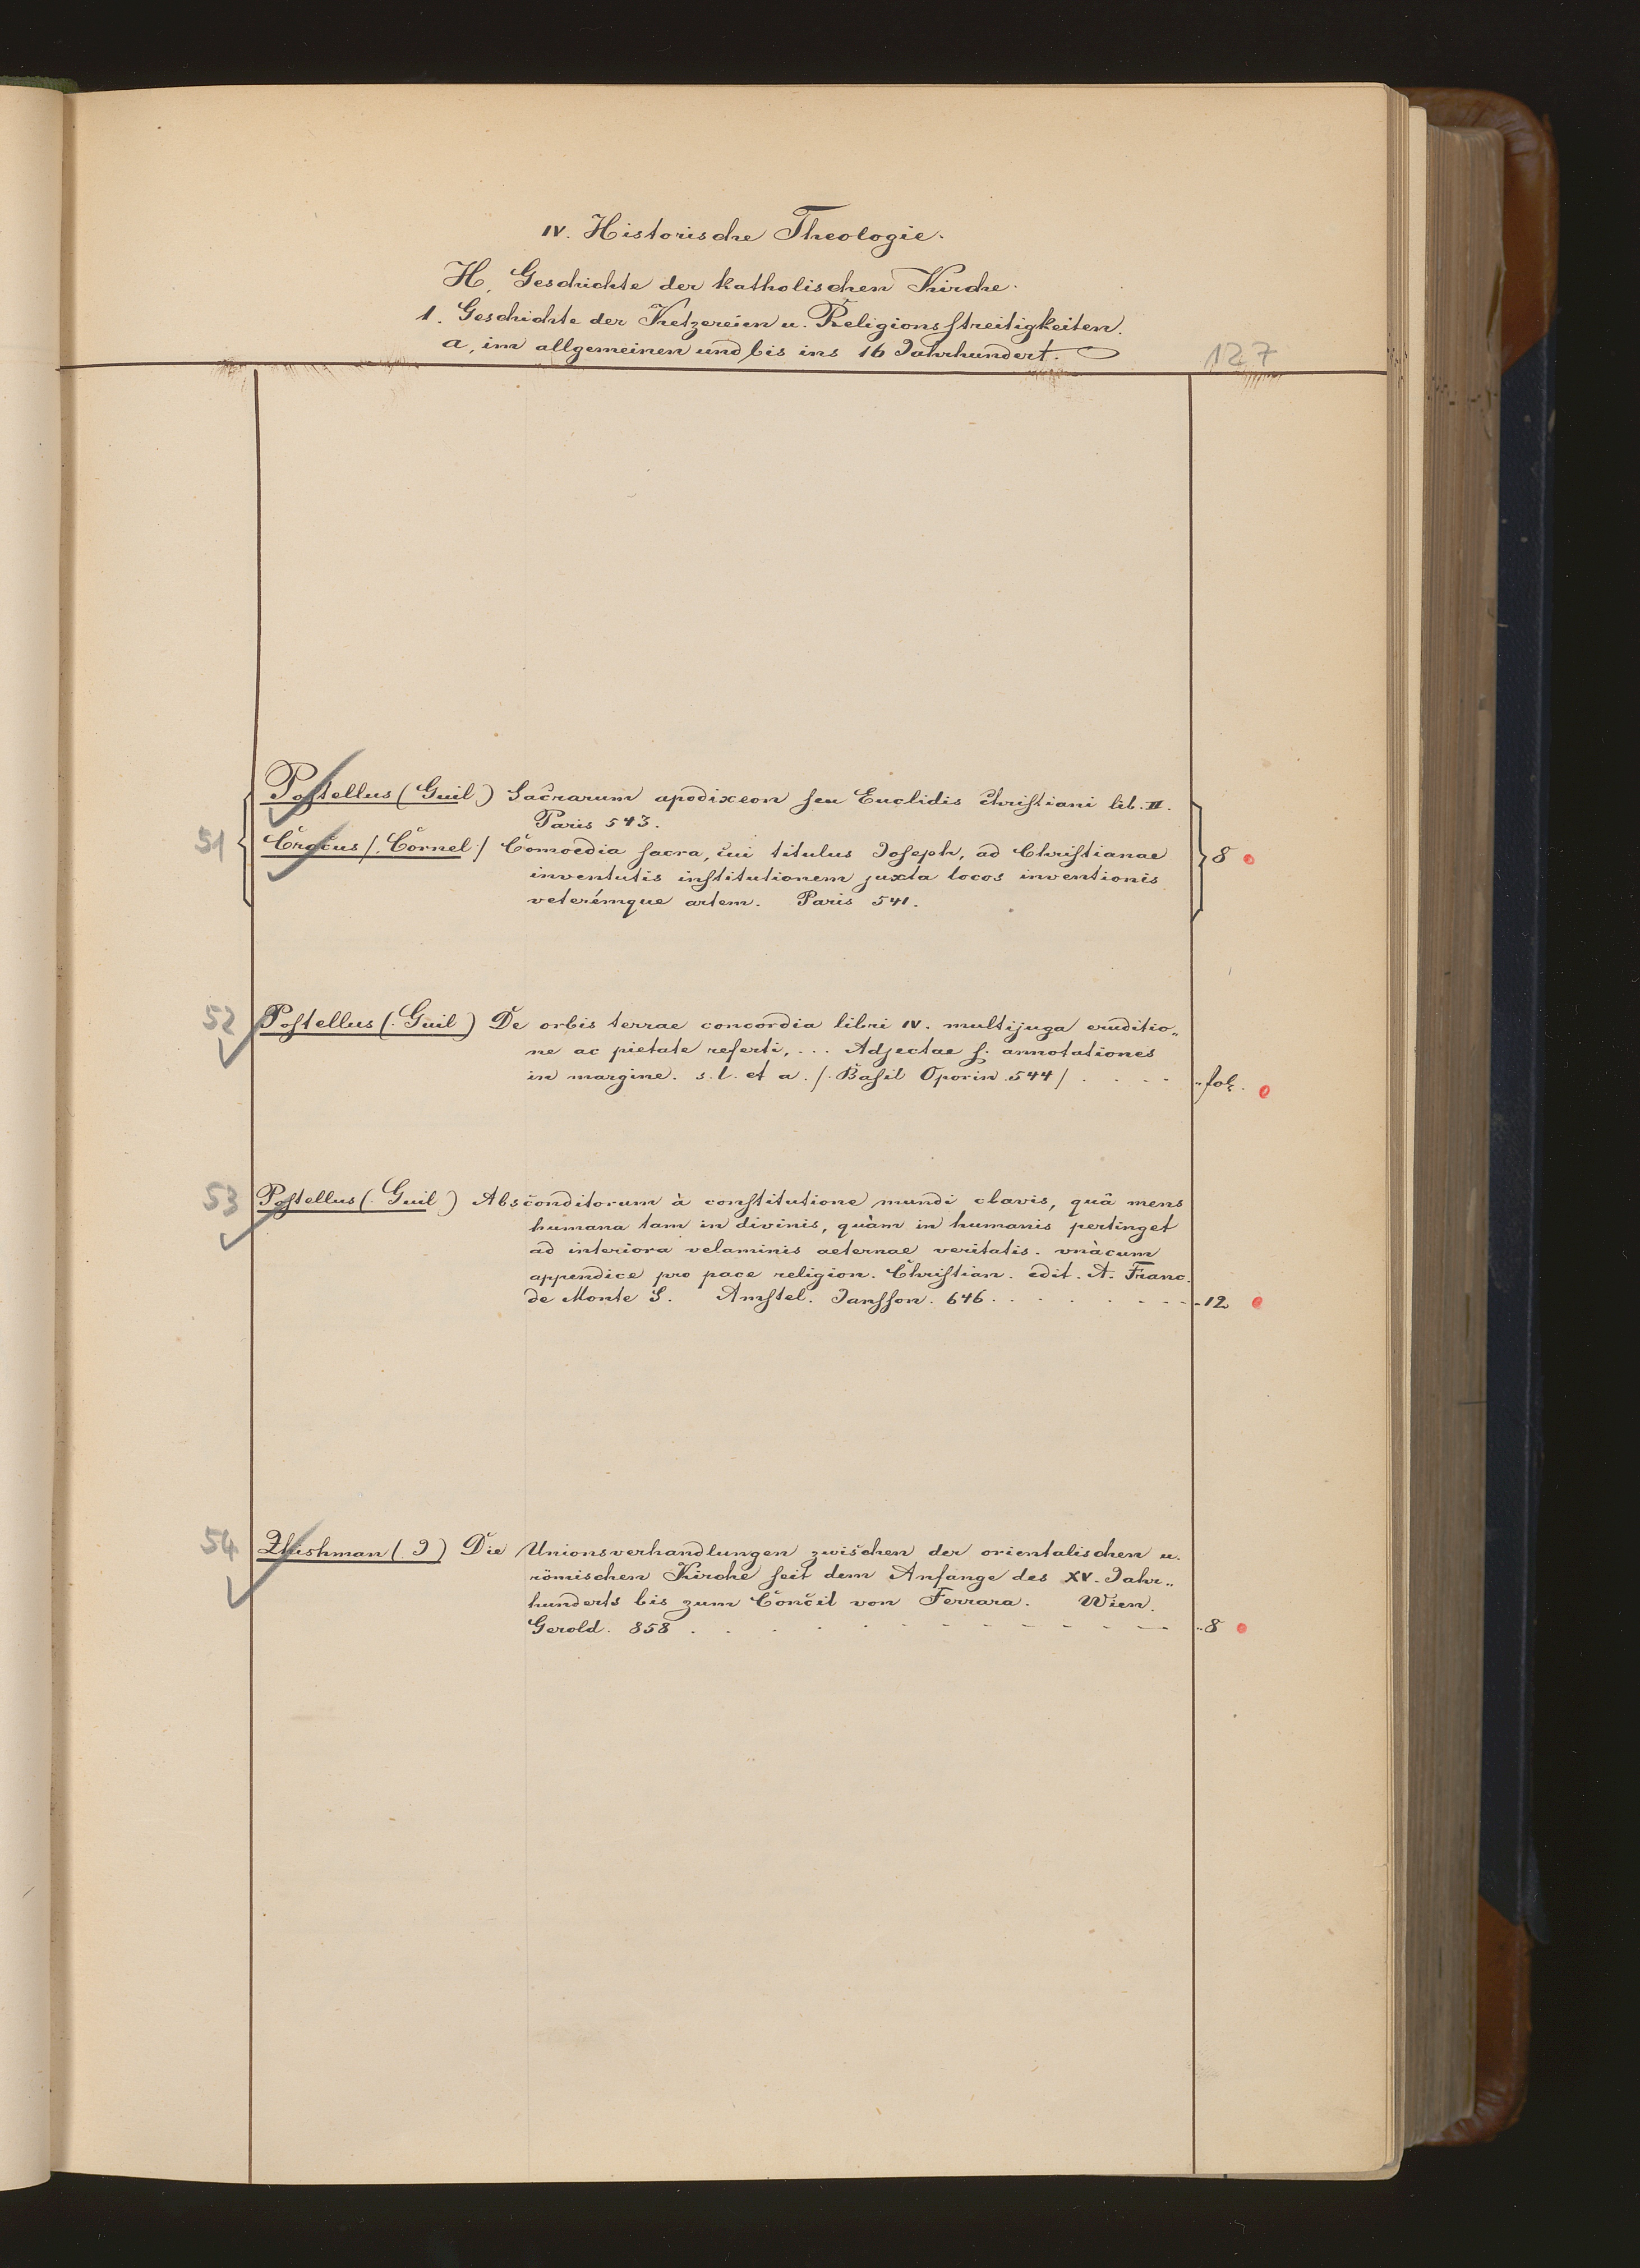 IV. Historische Theologie.
H. Geschichte der katholischen Kirche.
1. Geschichte der Ketzereien u. Religionsstreitigkeiten.
a, im allgemeinen und bis ins 16 Jahrhundert.
127
Postellus (Guil.) Sacrarum apodixeon seu Euclidis Christiani lib. II.
Paris 543.
51 Crocus /. Cornel ./ Comoedia sacra, cui titulus Joseph, ad Christianae 8
inventutis institutionem juxta locos inventionis
veterémque artem. Paris 541.
52 Postellus (. Guil.) De orbis terrae concordia libri IV. multijuga eruditio„
ne ac pietate referti, ... Adjectae s. annotationes
in margine. s. l. et a. /. Basil Oporin. 544 / . . . . fol.
53 Postellus (. Guil.) Absconditorum à constitutione mundi clavis, quâ mens
humana tam in divinis, quàm in humanis pertinget
ad interiora velaminis aeternae veritatis. vnàcum
appendice pro pace religion. Christian. edit. A. Franc.
de Monte S. Amstel. Jansson. 646 . . . . . . . 12
54 Zhishman (. J.) Die Unionsverhandlungen zwischen der orientalischen u.
römischen Kirche seit dem Anfange des XV. Jahr„
hunderts bis zum Concil von Ferrara. Wien.
Gerold. 858 . . . . . . . . . . . . 8